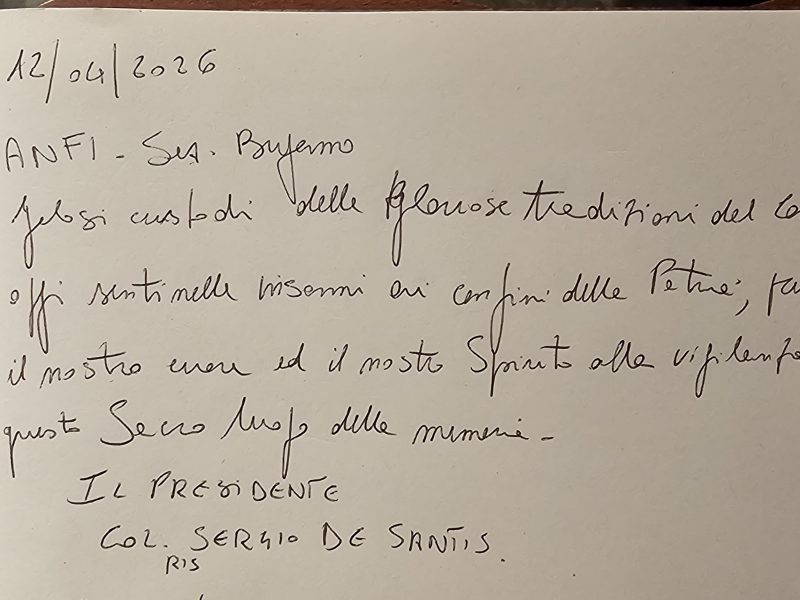 12/04/2026
ANFI - Sez.
Gelosi custodi delle gloriose tradizioni del
oggi sentinelle insonni ai confini della Patria,
il nostro cuore ed il nostro Spirito alla vigilanza
questo Sacro luogo della memoria -
IL PRESIDENTE
COL. SERGIO DE SANTIS.
RIS